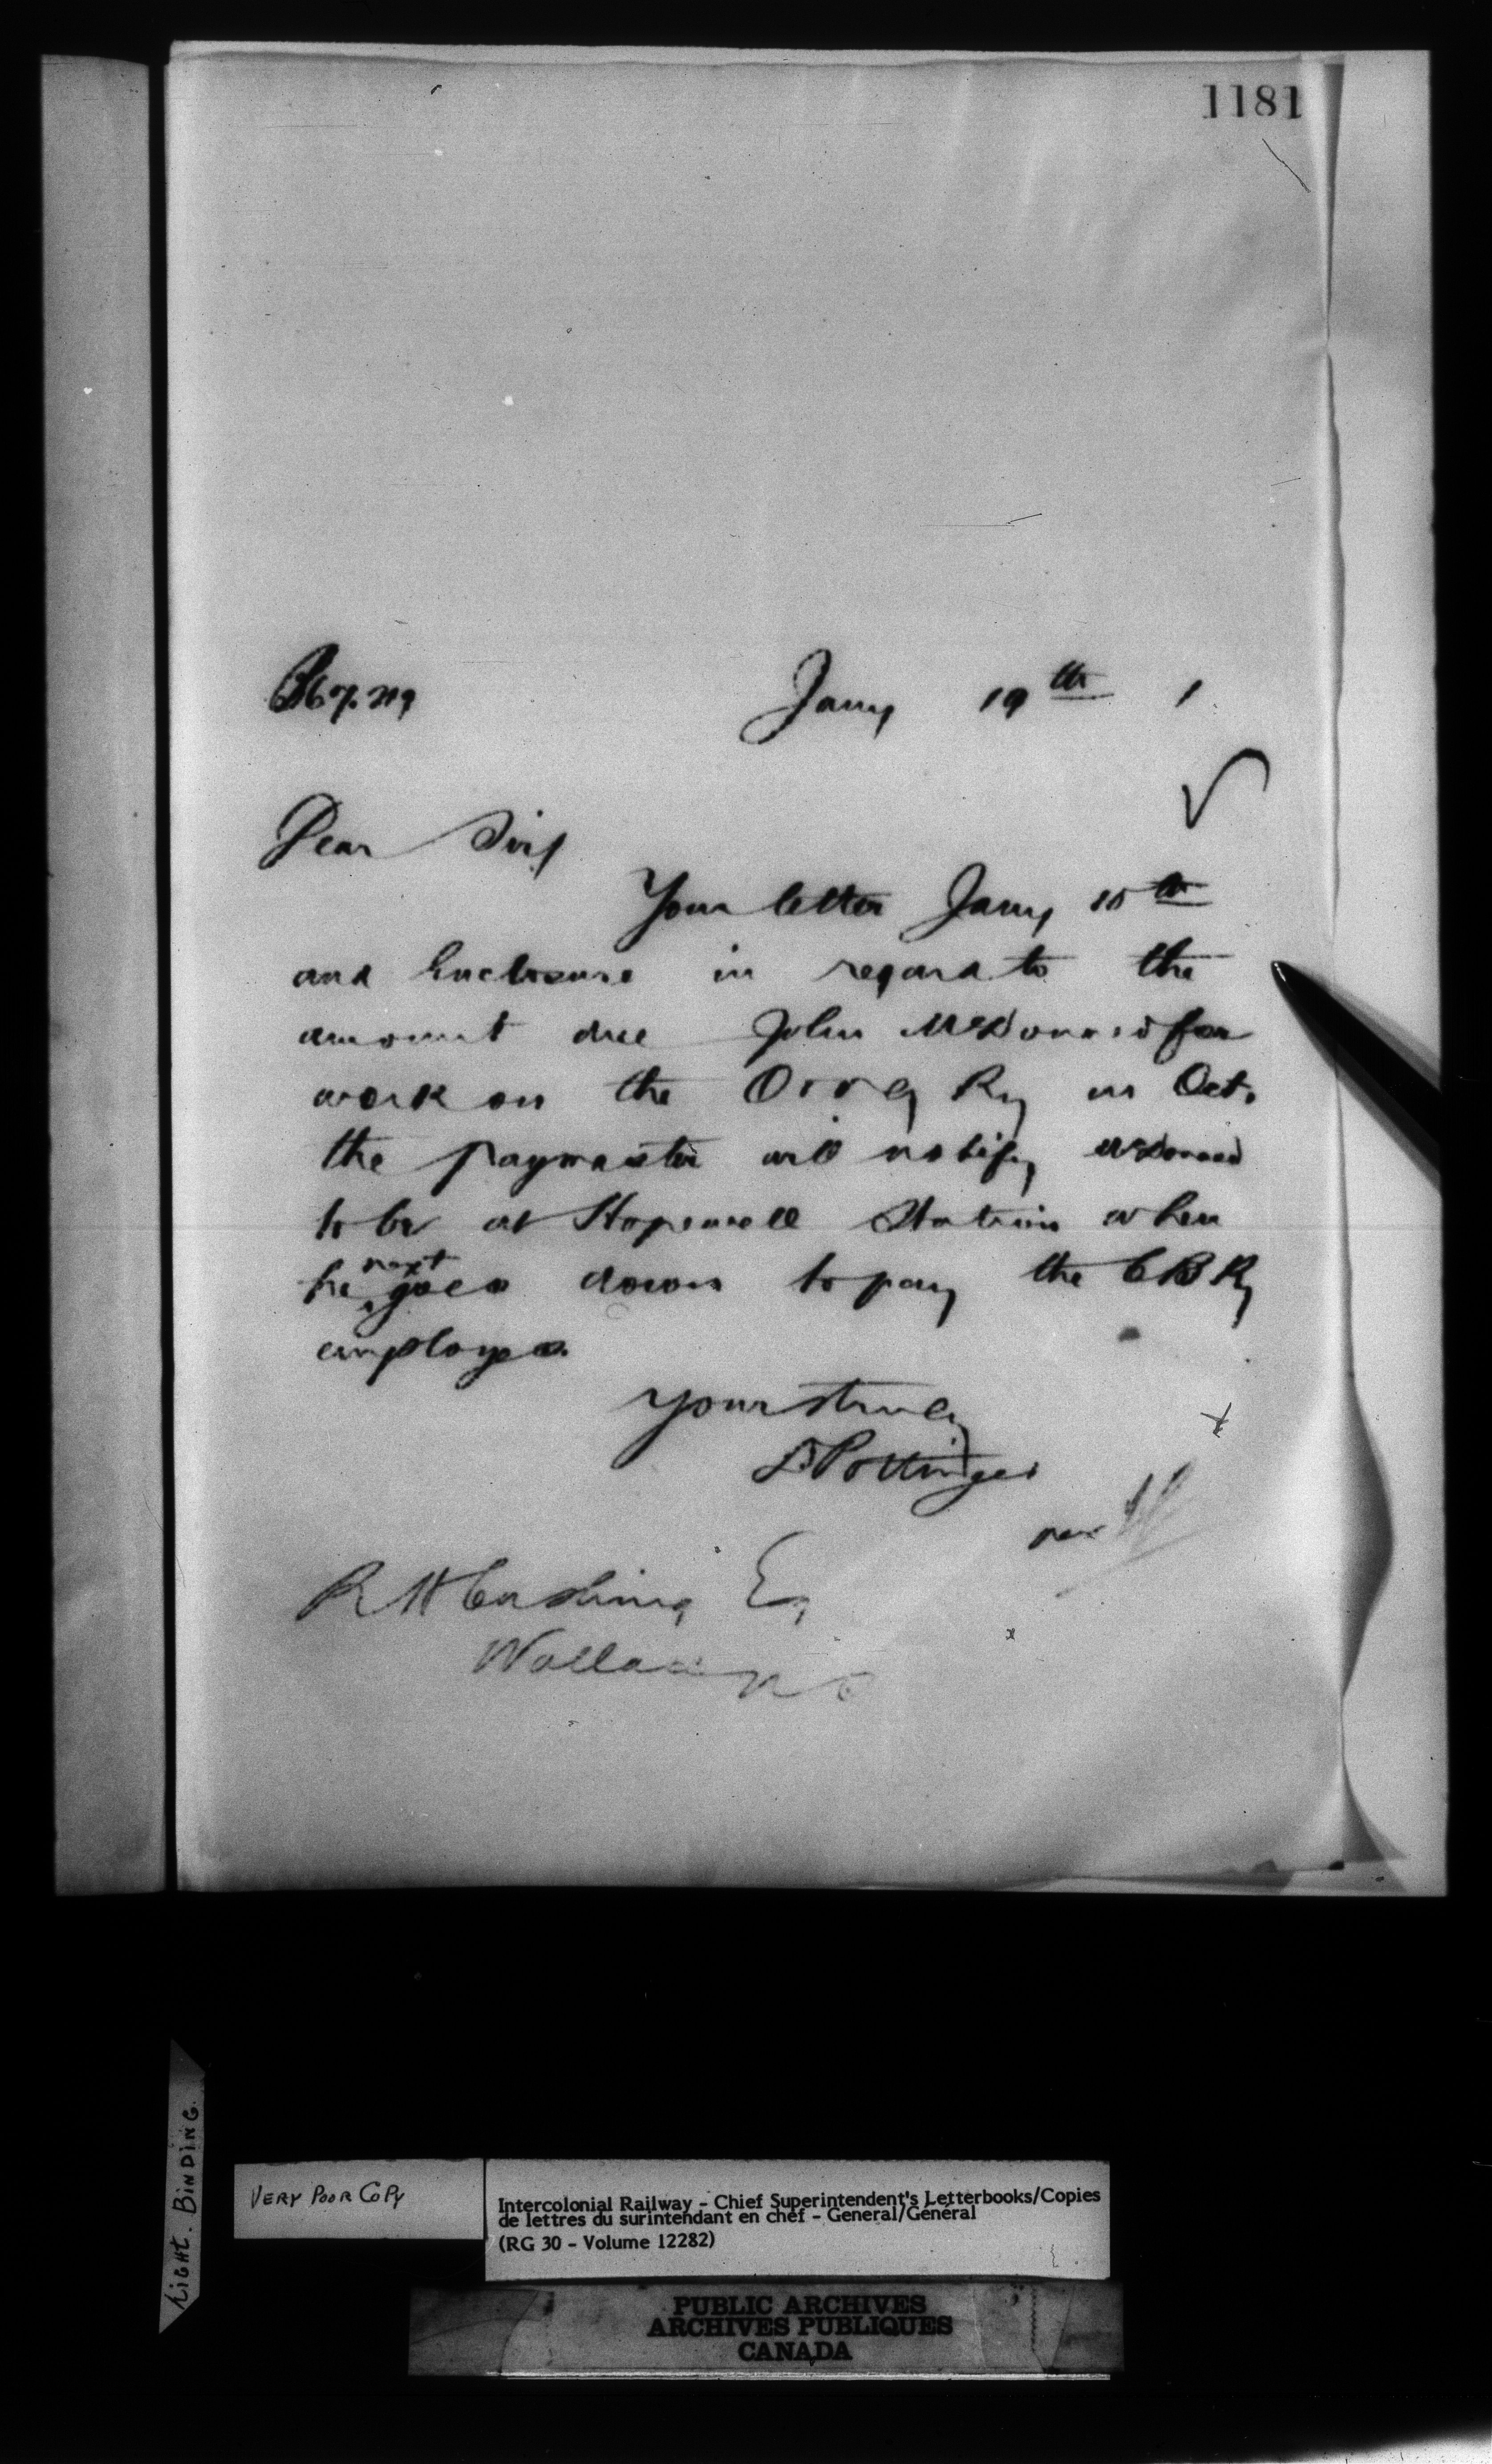 1181
Jany 19th 1
Dear Sir,
Your letter Jany 15th
and Enclosure in regard to the
amount due John McDonald for
work on the O & N G Ry in Oct.
the paymaster will notify McDonald
to be at Hopewell Station when
he next goes down to pay the C B Ry
employes.
Yours truly
D Pottinger
per
R H Cushing Eq
Wallace N S
LIGHT. BINDING.
VERY POOR COPY
Intercolonial Railway - Chief Superintendent's Letterbooks/Copies
de lettres du surintendant en chef - General/Général
(RG 30 - Volume 12282)
PUBLIC ARCHIVES
ARCHIVES PUBLIQUES
CANADA